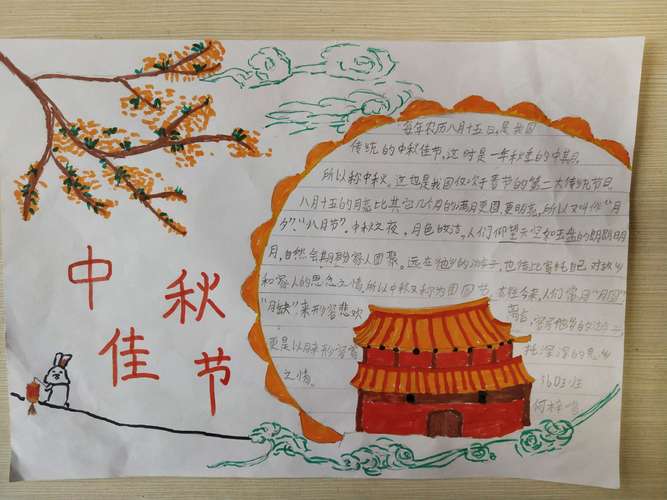 中秋
佳节
每年农历八月十五日，是我国
传统的中秋佳节，这时是一年秋季的中期，
所以称中秋。这也是我国仅次于春节的第二大传统节日
八月十五的月亮比其它几个月的满月更圆，更明亮，所以又叫做“月
夕”、“八月节”。中秋之夜，月色皎洁，人们仰望天空如玉盘的明朗
月，自然会期盼家人团聚。远在他乡的游子，也借此寄托自己对故乡
和家人的思念之情，所以中秋又称为团圆节。古往今来，人们常用“月圆”
“月缺”来形容悲欢
更是以月来形容
托深深的思乡
之情。